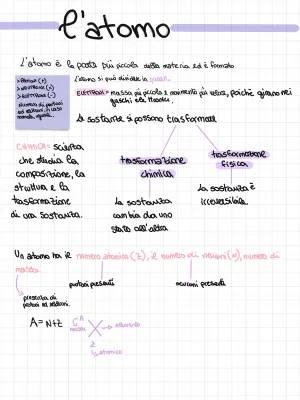 l'atomo
L'atomo è la parte più piccola della materia ed è formato
> protoni (+)
> neutroni (•)
> elettroni (-)
numero di protoni
ed elettroni, in caso
normale, uguale.
L'atomo si può dividere in quark.
ELETTRONI = massa più piccola e movimento più veloce, poiché girano nei
gusci ed. atomici.
Le sostanze si possono trasformare
CHIMICA = scienza
che studia la
composizione, la
struttura e la
trasformazione
di una sostanza.
trasformazione
chimica
la sostanza
cambia da uno
stato all'altro
trasformazione
fisica
la sostanza è
irreversibile.
Un atomo ha il numero atomico (Z), il numero di neutroni (N), numero di
massa.
protoni presenti
neutroni presenti
presenza di
protoni ed neutroni.
A = N+Z
A
massa
X → elemento
Z
↳ atomico